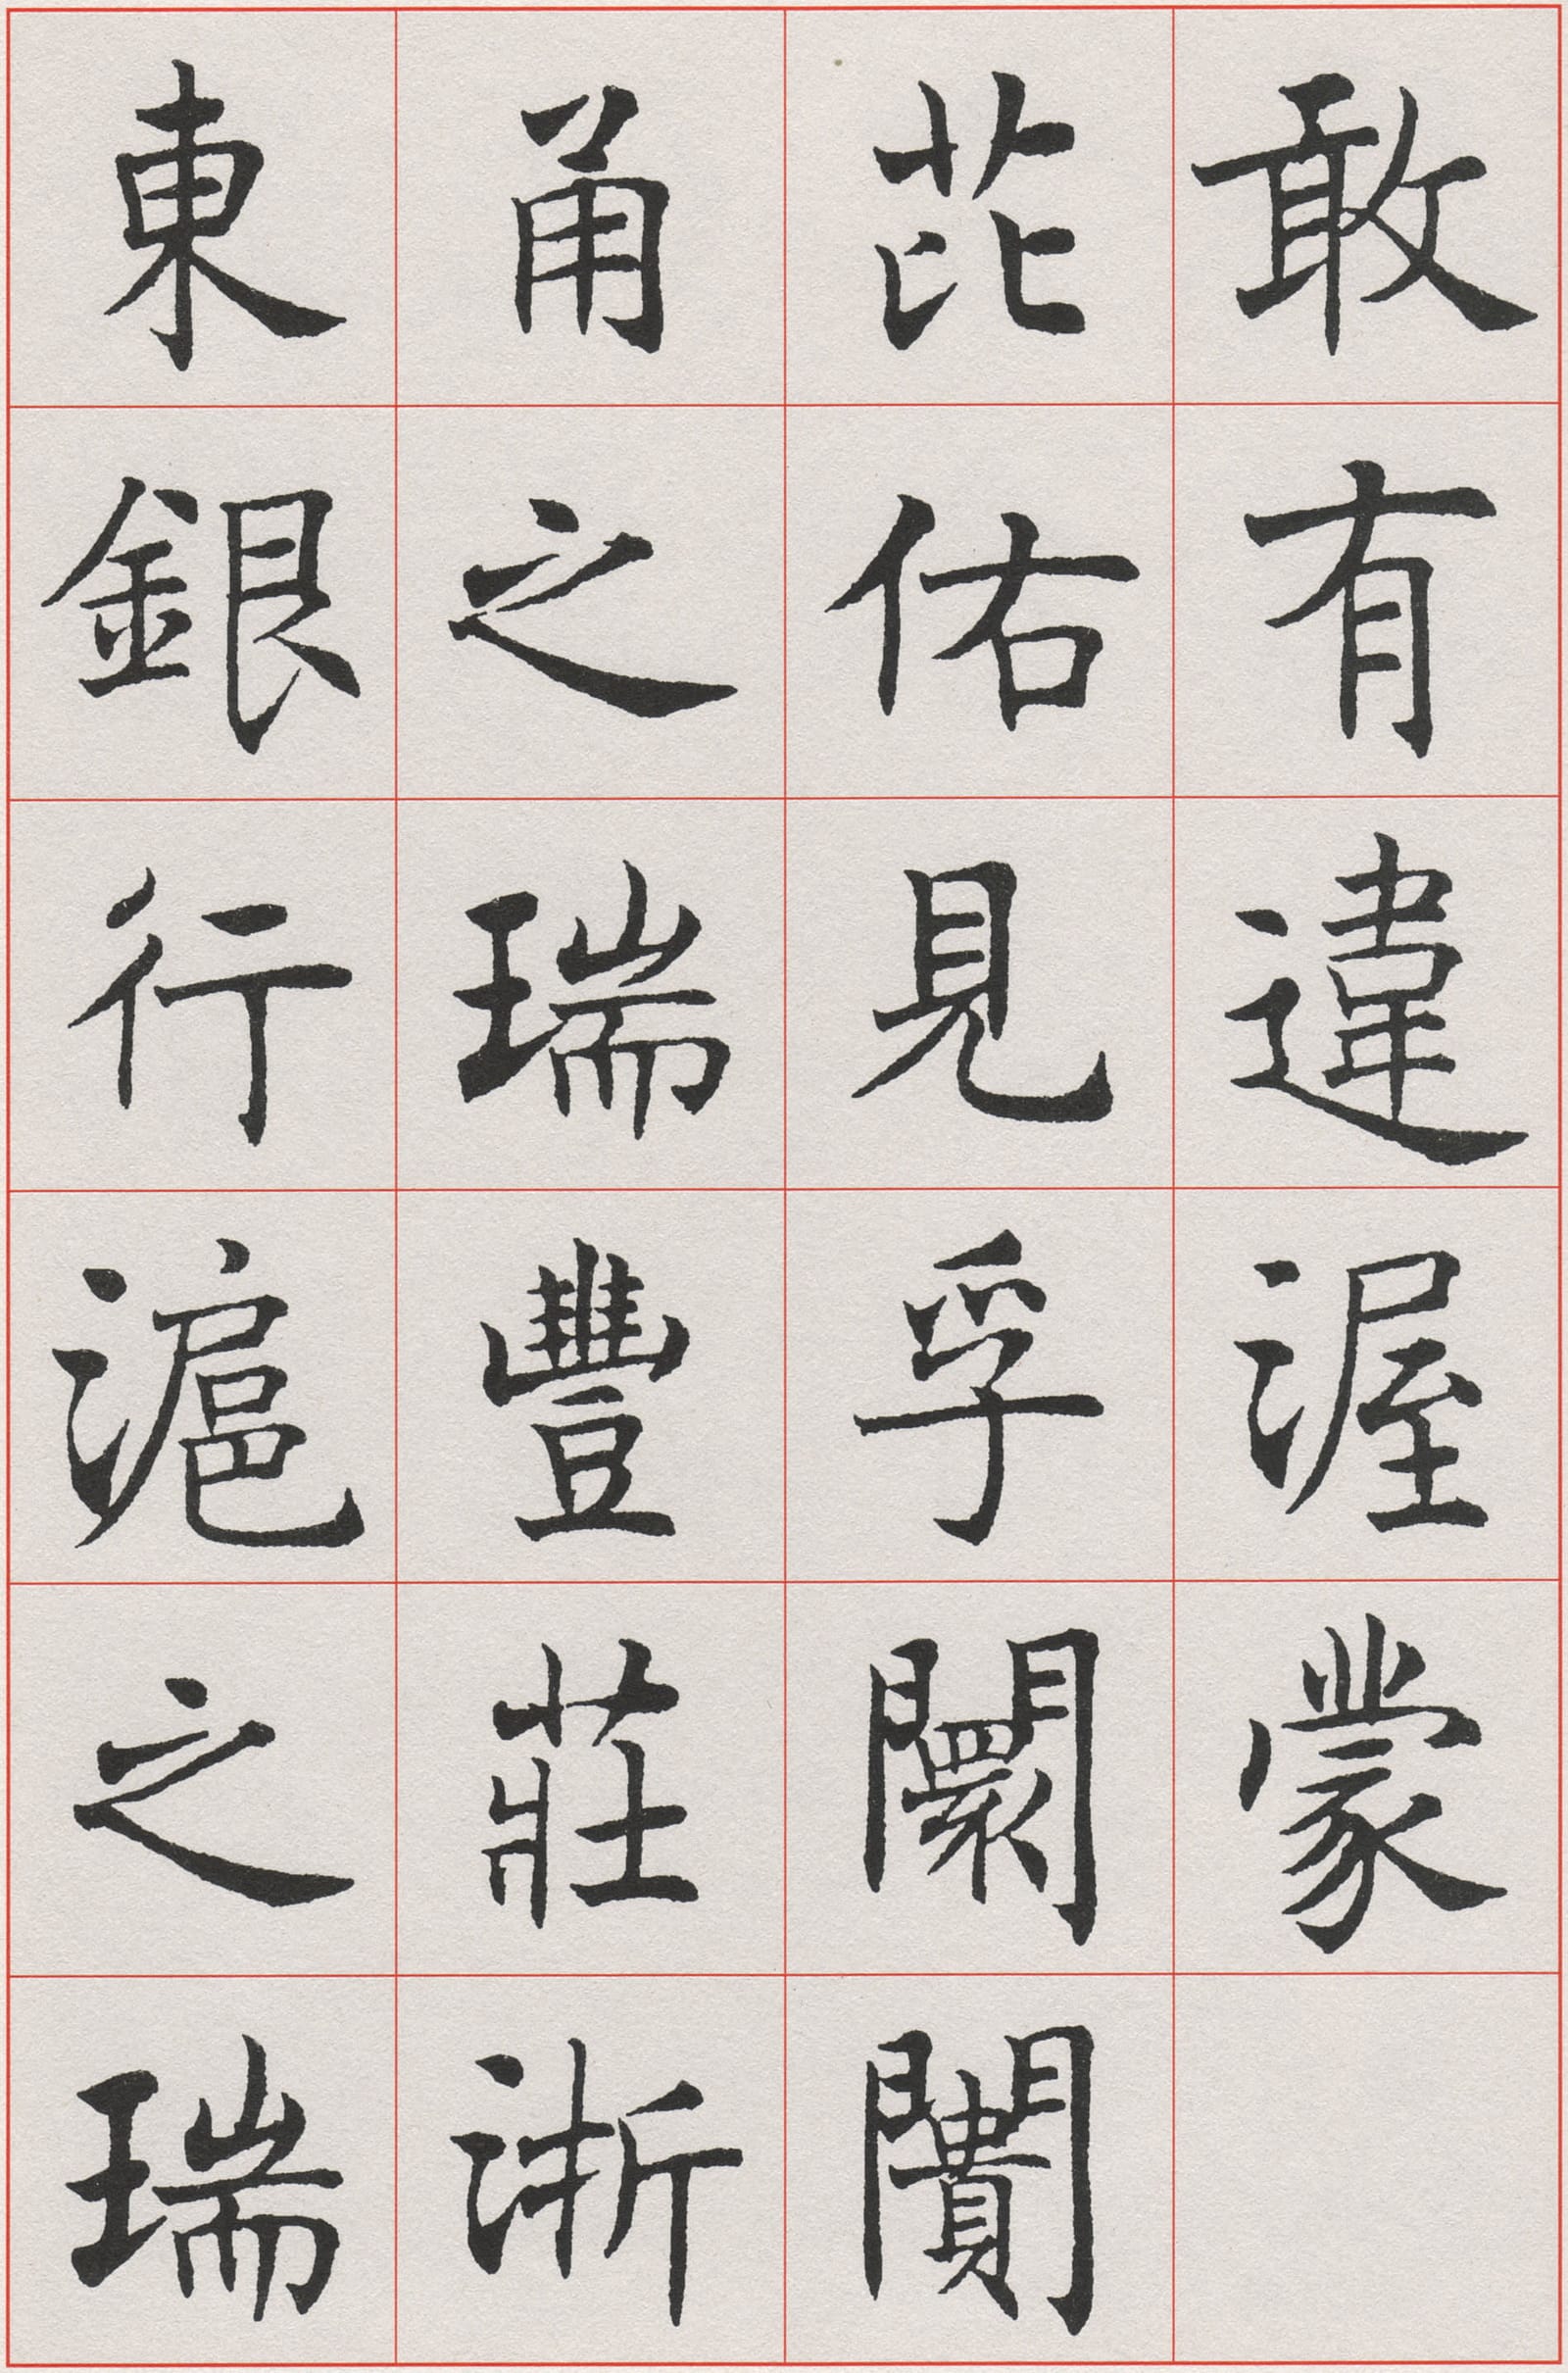 敢有違渥蒙
茈佑見孚闤闠
甬之瑞豐莊浙
東銀行滬之瑞